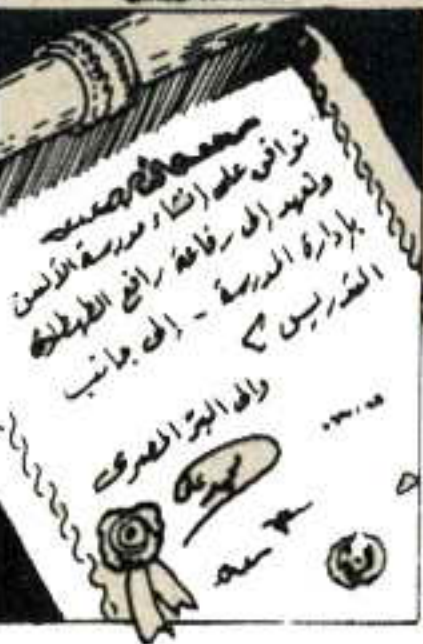 نوافق على إنشاء مدرسة الألسن
ونعهد إلى رفاعة رافع الطهطاوى
بإدارة المدرسة - إلى جانب
التدريس >
والى البر المصرى
محمد على